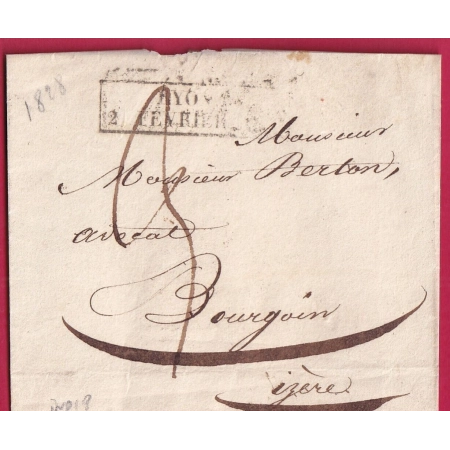 1828
LYON
2 FEVRIER
3
Monsieur
Monsieur Berton,
avocat
Bourgoin
izère